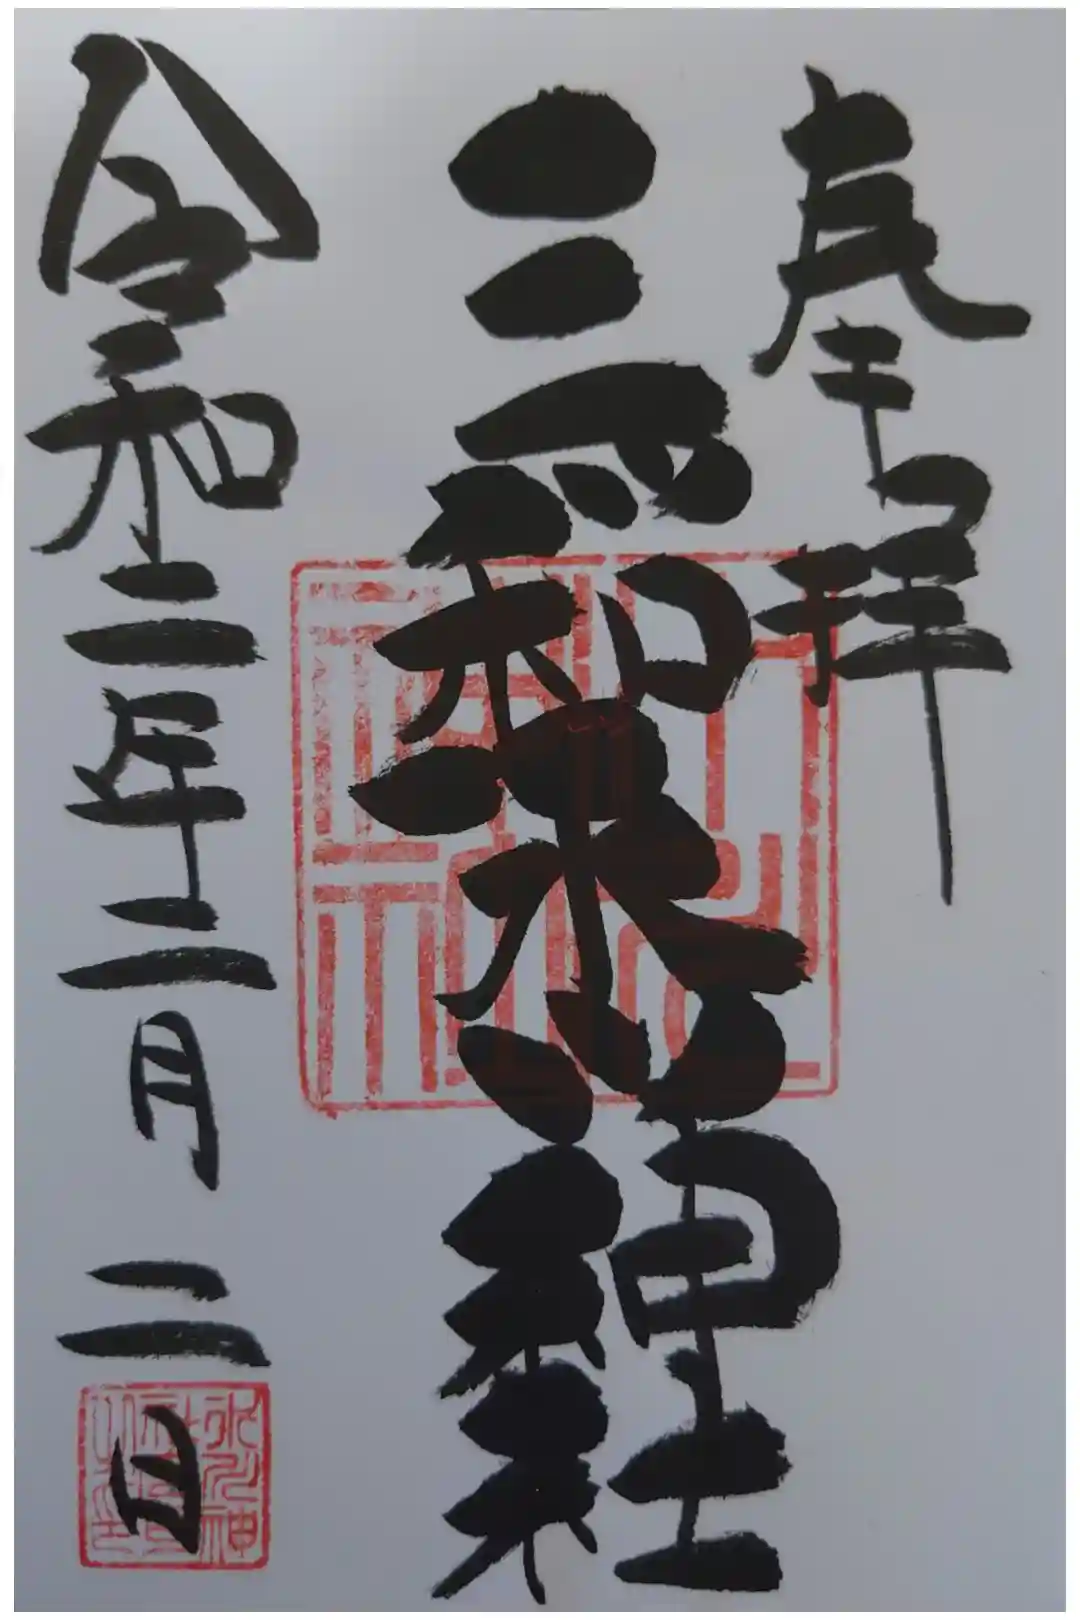 奉拝
三ツ和氷川神社
令和二年二月二日